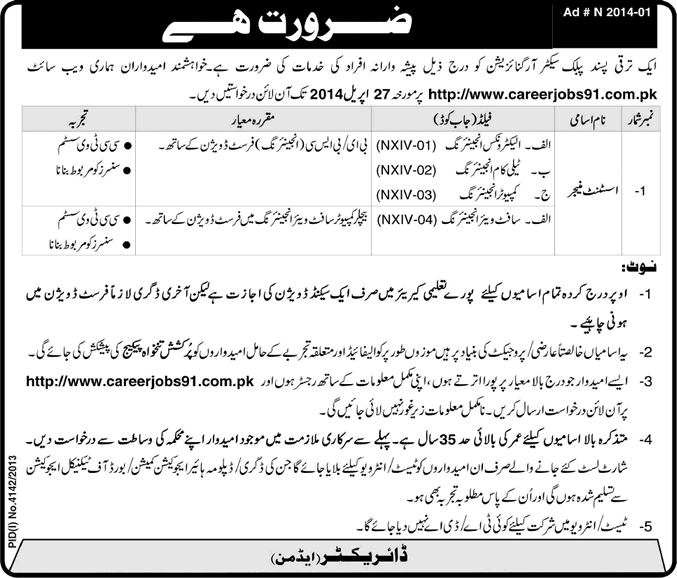 Ad # N 2014-01
ضرورت ہے
ایک ترقی پسند پبلک سیکٹر آرگنائزیشن کو درج ذیل پیشہ ورانہ افراد کی خدمات کی ضرورت ہے۔ خواہشمند امیدواران ہماری ویب سائٹ
http://www.careerjobs91.com.pk پر مورخہ 27 اپریل 2014 تک آن لائن درخواستیں دیں۔
نمبر شمار نام اسامی فیلڈ (جاب کوڈ) مقررہ معیار تجربہ
1- اسسٹنٹ منیجر
الف۔ الیکٹرونکس انجینئرنگ (NXIV-01)
ب۔ ٹیلی کام انجینئرنگ (NXIV-02)
ج۔ کمپیوٹر انجینئرنگ (NXIV-03)
بی ای/بی ایس سی (انجینئرنگ) فرسٹ ڈویژن کے ساتھ۔
● سی سی ٹی وی سسٹم
● سنسرز کو مربوط بنانا
الف۔ سافٹ ویئر انجینئرنگ (NXIV-04)
بیچلر کمپیوٹر سافٹ ویئر انجینئرنگ میں فرسٹ ڈویژن کے ساتھ۔
● سی سی ٹی وی سسٹم
● سنسرز کو مربوط بنانا
نوٹ:
1- اوپر درج کردہ تمام اسامیوں کیلئے پورے تعلیمی کیریئر میں صرف ایک سیکنڈ ڈویژن کی اجازت ہے لیکن آخری ڈگری لازماً فرسٹ ڈویژن میں
ہونی چاہیے۔
2- یہ اسامیاں خالصتاً عارضی/پروجیکٹ کی بنیاد پر ہیں موزوں طور پر کوالیفائیڈ اور متعلقہ تجربے کے حامل امیدواروں کو پرکشش تنخواہ پیکیج کی پیشکش کی جائے گی۔
3- ایسے امیدوار جو درج بالا معیار پر پورا اترتے ہوں، اپنی مکمل معلومات کے ساتھ رجسٹر ہوں اور http://www.careerjobs91.com.pk
پر آن لائن درخواست ارسال کریں۔ نامکمل معلومات زیر غور نہیں لائی جائیں گی۔
4- متذکرہ بالا اسامیوں کیلئے عمر کی بالائی حد 35 سال ہے۔ پہلے سے سرکاری ملازمت میں موجود امیدوار اپنے محکمہ کی وساطت سے درخواست دیں۔
شارٹ لسٹ کئے جانے والے صرف ان امیدواروں کو ٹیسٹ/انٹرویو کیلئے بلایا جائے گا جن کی ڈگری/ڈپلومہ ہائیر ایجوکیشن کمیشن/بورڈ آف ٹیکنیکل ایجوکیشن
سے تسلیم شدہ ہوں گی اور اُن کے پاس مطلوبہ تجربہ بھی ہو۔
5- ٹیسٹ/انٹرویو میں شرکت کیلئے کوئی ٹی اے/ڈی اے نہیں دیا جائے گا۔
ڈائریکٹر (ایڈمن)
PID(I) No.4142/2013